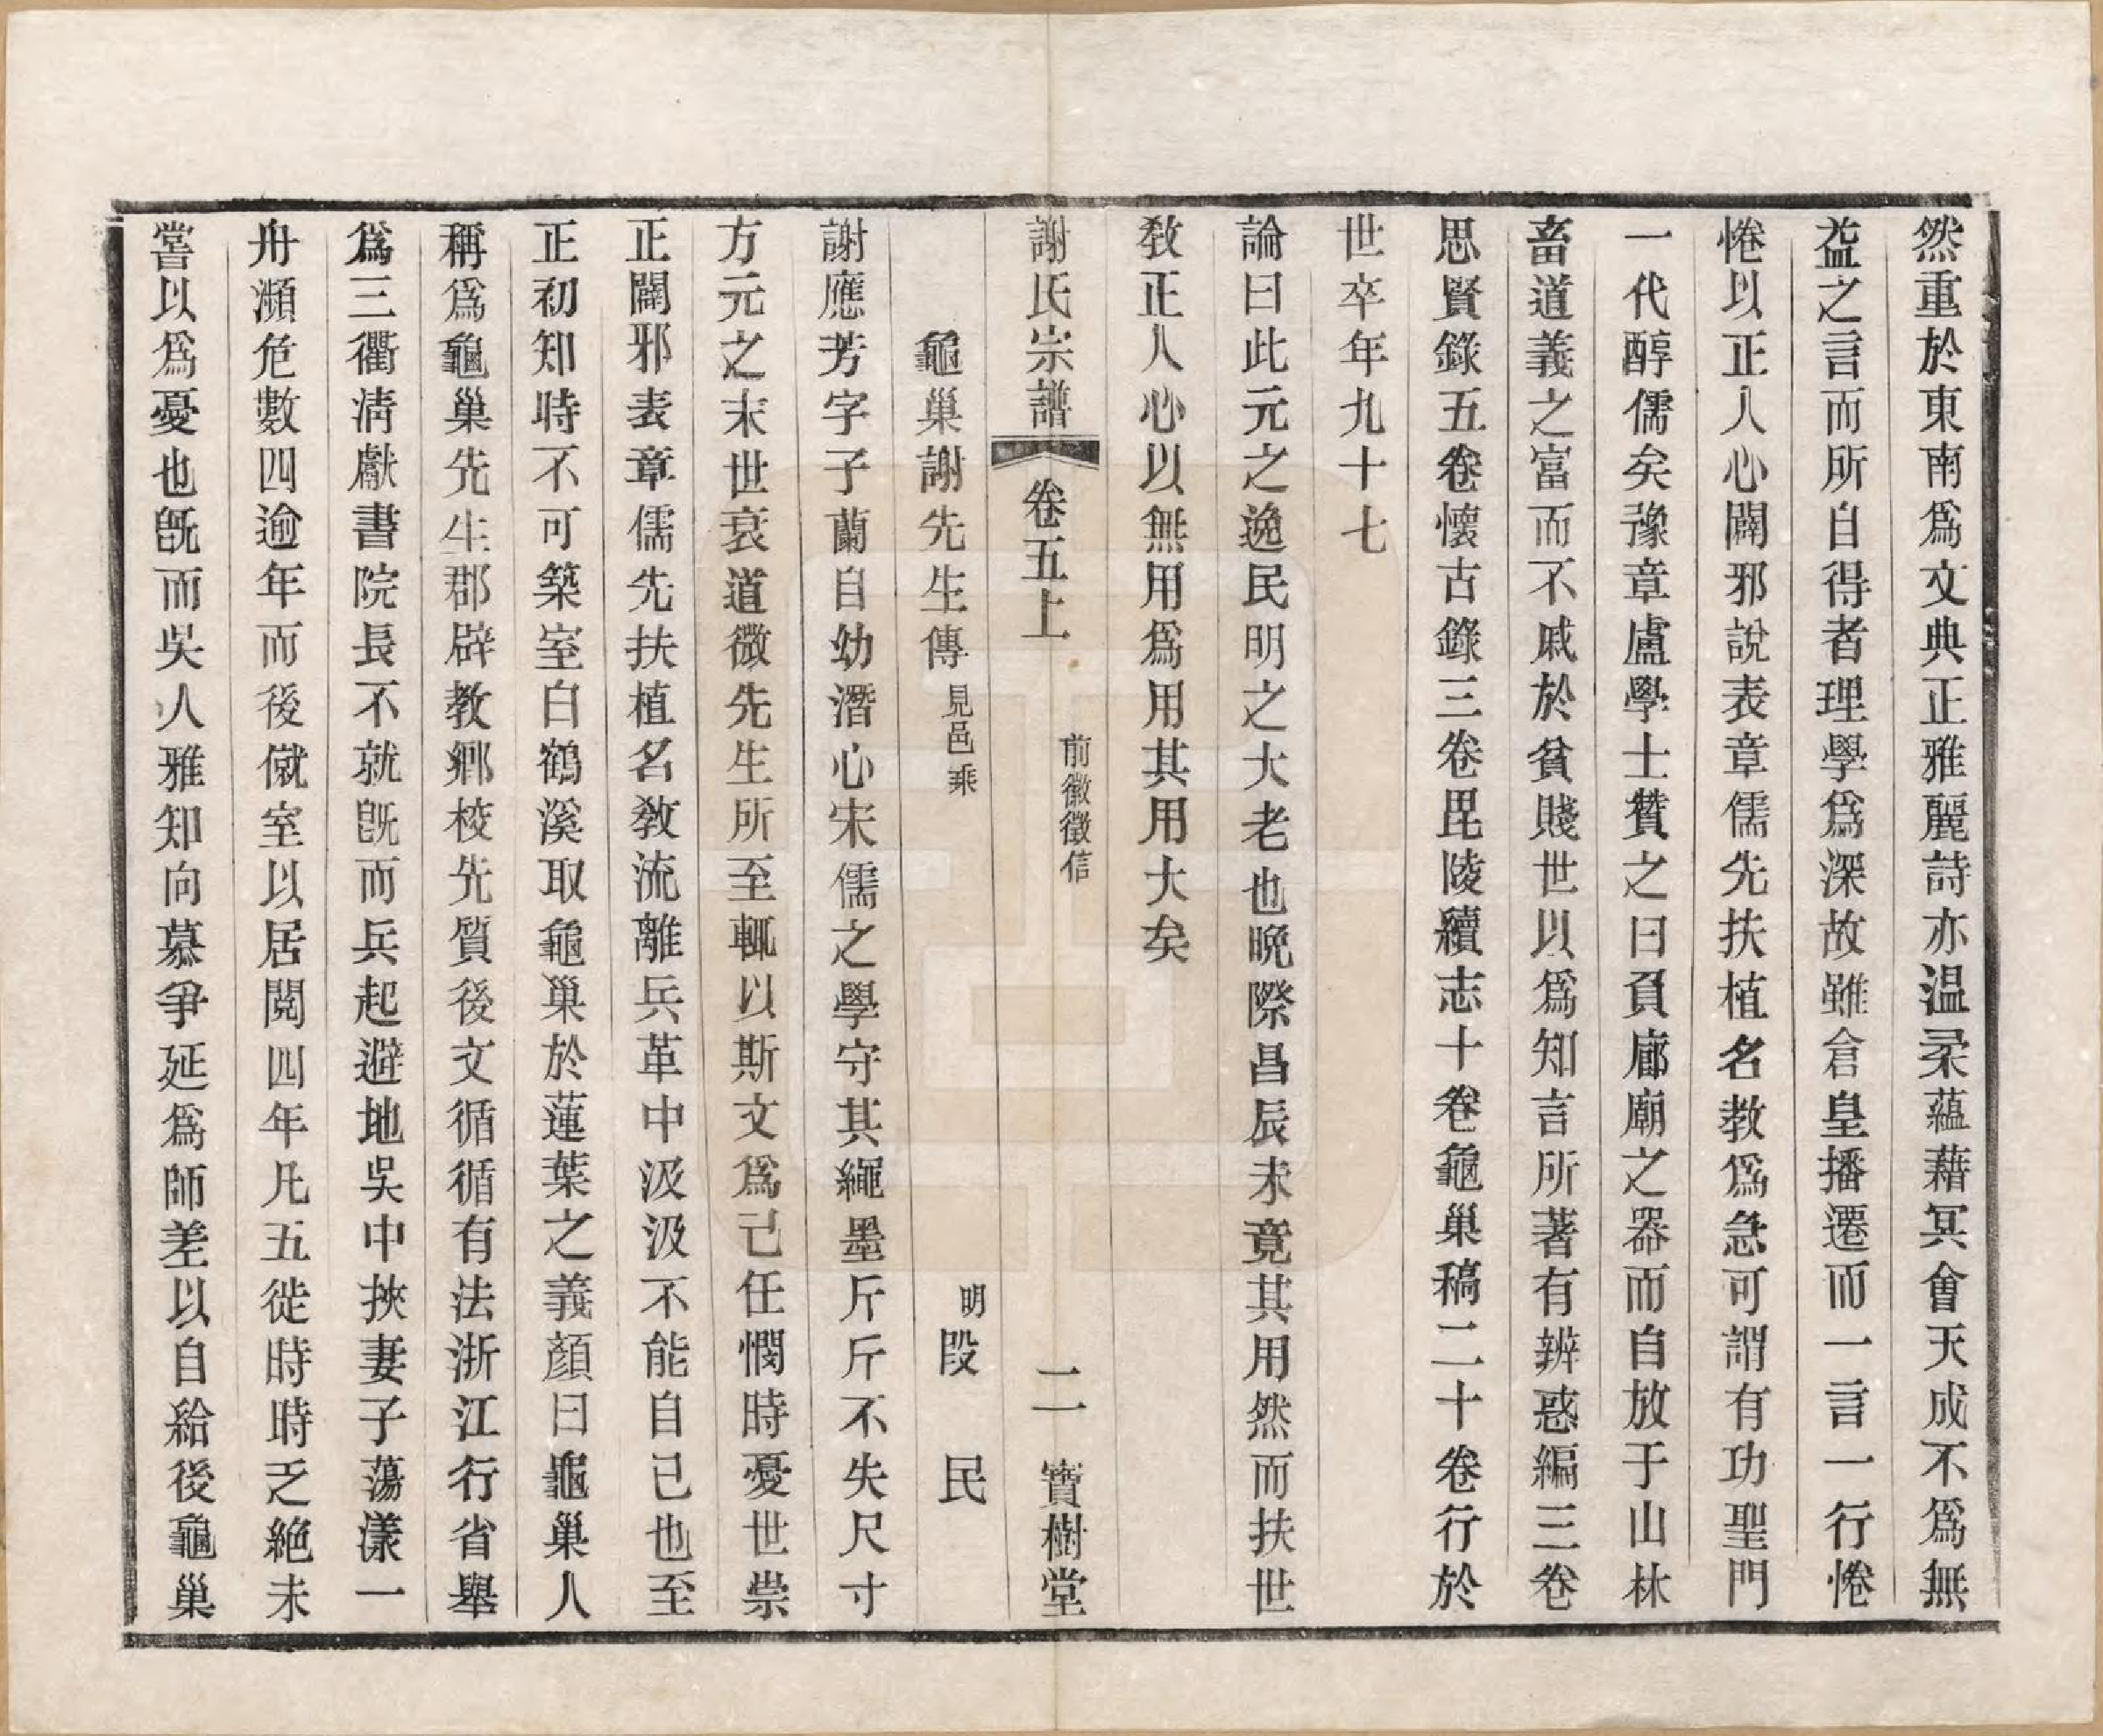 然重於東南爲文典正雅麗詩亦溫柔蘊藉冥會天成不爲無
益之言而所自得者理學爲深故雖倉皇播遷而一言一行惓
惓以正人心闢邪說表章儒先扶植名教爲急可謂有功聖門
一代醇儒矣豫章盧學士贊之曰負廊廟之器而自放于山林
畜道義之富而不戚於貧賤世以爲知言所著有辨惑編三卷
思賢錄五卷懷古錄三卷毘陵續志十卷龜巢稿二十卷行於
世卒年九十七
論曰此元之逸民明之大老也晚際昌辰未竟其用然而扶世
教正人心以無用爲用其用大矣
謝氏宗譜 卷五上 前徽徵信 二 寶樹堂
龜巢謝先生傳 見邑乘 明 段 民
謝應芳字子蘭自幼潛心宋儒之學守其繩墨斤斤不失尺寸
方元之末世衰道微先生所至輒以斯文爲己任憫時憂世崇
正闢邪表章儒先扶植名敎流離兵革中汲汲不能自已也至
正初知時不可築室白鶴溪取龜巢於蓮葉之義顏曰龜巢人
稱爲龜巢先生郡辟教鄉校先質後文循循有法浙江行省舉
爲三衢清獻書院長不就旣而兵起避地吳中挾妻子蕩漾一
舟瀕危數四逾年而後僦室以居閱四年凡五徙時時乏絕未
嘗以爲憂也旣而吳人雅知向慕爭延爲師差以自給後龜巢